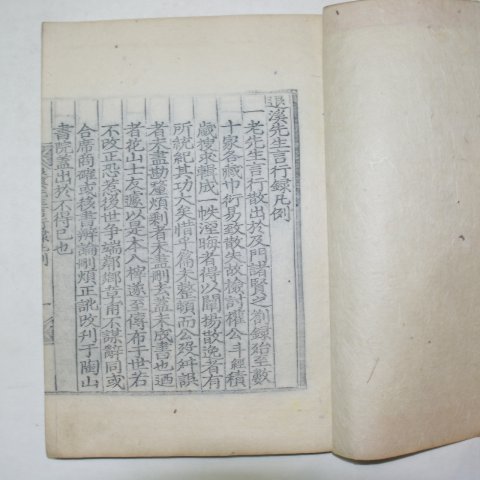 退溪先生言行録凡例
一老先生言行散出於及門諸賢之劄録殆至數
十家各藏巾衍易致散失故檢討權公斗經積
歲搜求輯成一帙湮晦者得以闡揚散逸者有
所統紀其功大矣惜乎爲未整頓而公歿舛誤
者未盡勘釐煩剩者未盡刪去盖未成書也迺
者花山士友遽以是本入梓遂至傳布于世若
不改正恐惹後世爭端鄰鄕章甫不謀辭同或
合席商確或移書辯論刪煩正訛改刊于陶山
書院盖出於不得已也